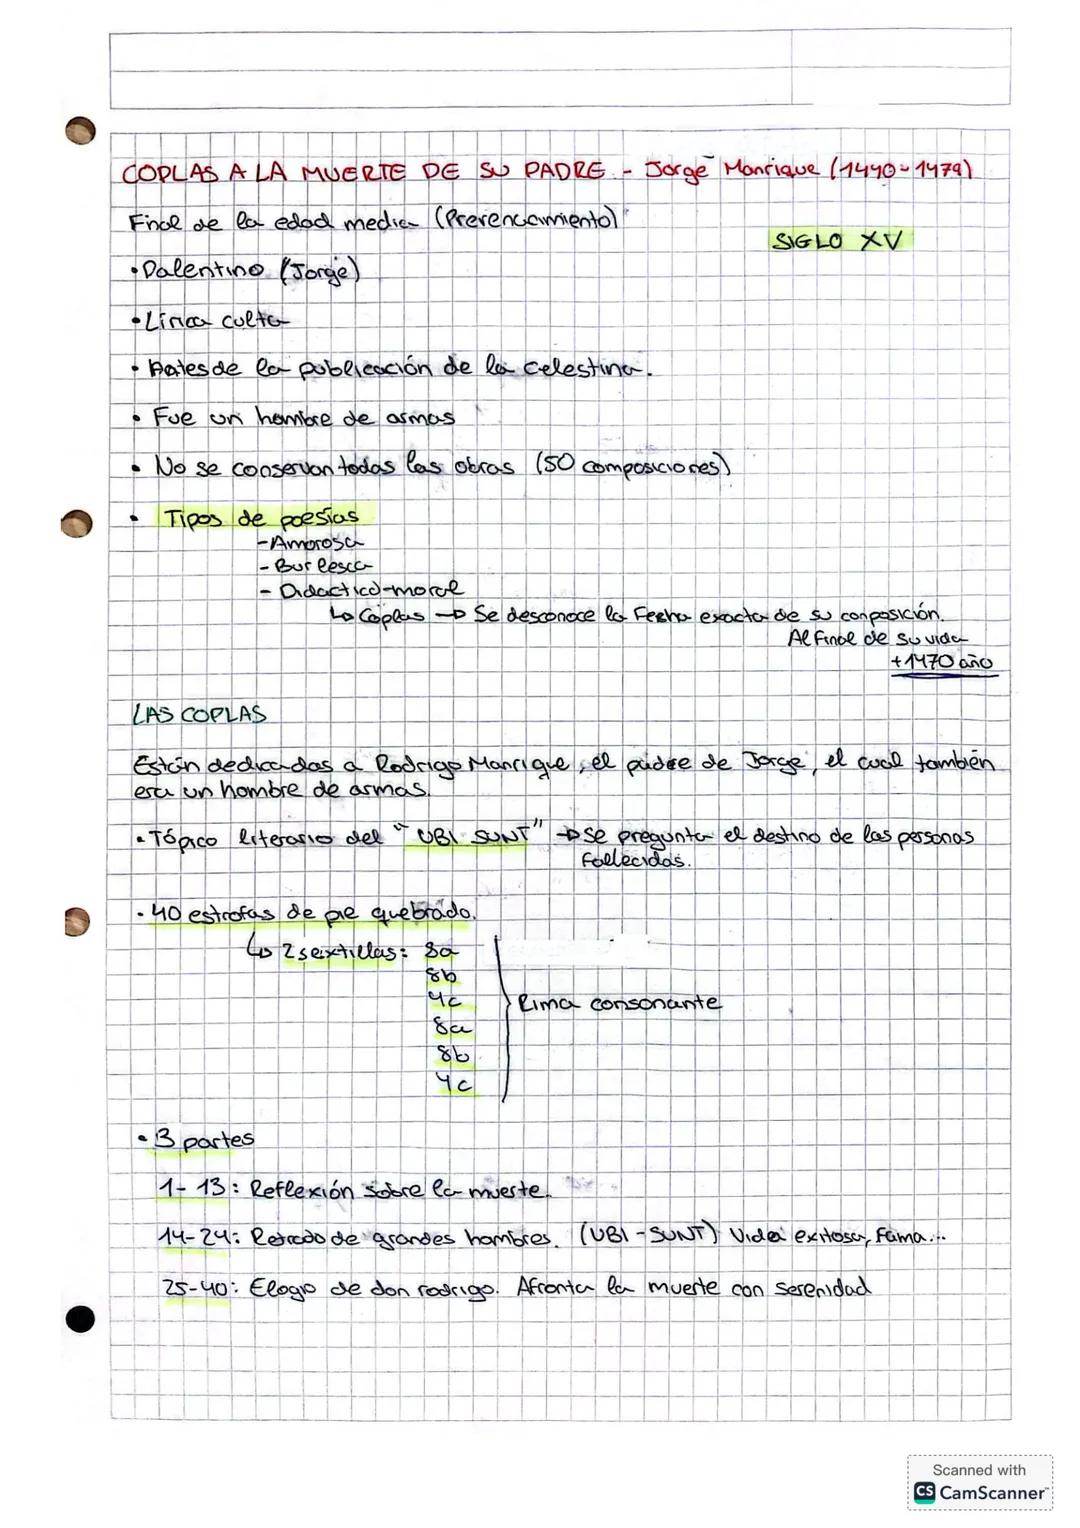 COPLAS A LA MUERTE DE SU PADRE - Jorge Manrique (1440-1479)
Final de la edad media (Prerenacimiento)
SIGLO XV
• Palentino (Jorge)
• Lírica culta
• Antes de la publicación de la celestina.
• Fue un hombre de armas
• No se conservan todas las obras (50 composiciones)
• Tipos de poesías
- Amorosa
- Burlesca
- Didactico-moral
↳ Coplas → Se desconoce la Fecha exacta de su composición.
Al final de su vida
+1470 año
LAS COPLAS
Están dedicadas a Rodrigo Manrique, el padre de Jorge, el cual también
era un hombre de armas.
• Tópico literario del "UBI SUNT" → Se pregunta el destino de las personas
fallecidas.
• 40 estrofas de pie quebrado.
↳ 2 sextillas: 8a
8b
4c
8a
8b
4c
Rima consonante
• 3 partes
1-13: Reflexión sobre la muerte.
14-24: Retrado de grandes hombres. (UBI-SUNT) Vida exitosa, Fama...
25-40: Elogio de don rodrigo. Afronta la muerte con serenidad
Scanned with
CS CamScanner